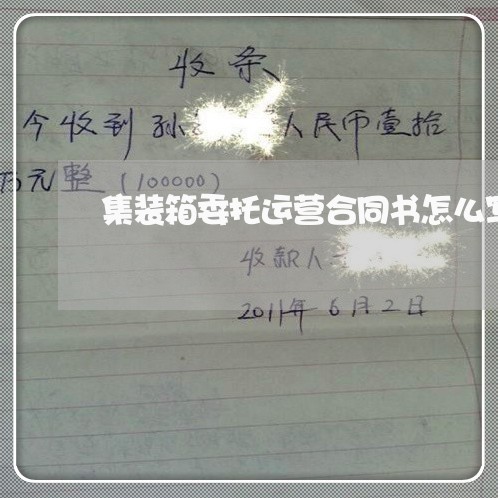 收条
今收到孙 人民币壹拾
万元整(100000)
集装箱委托运营合同书怎么
收款人
2011年6月2日